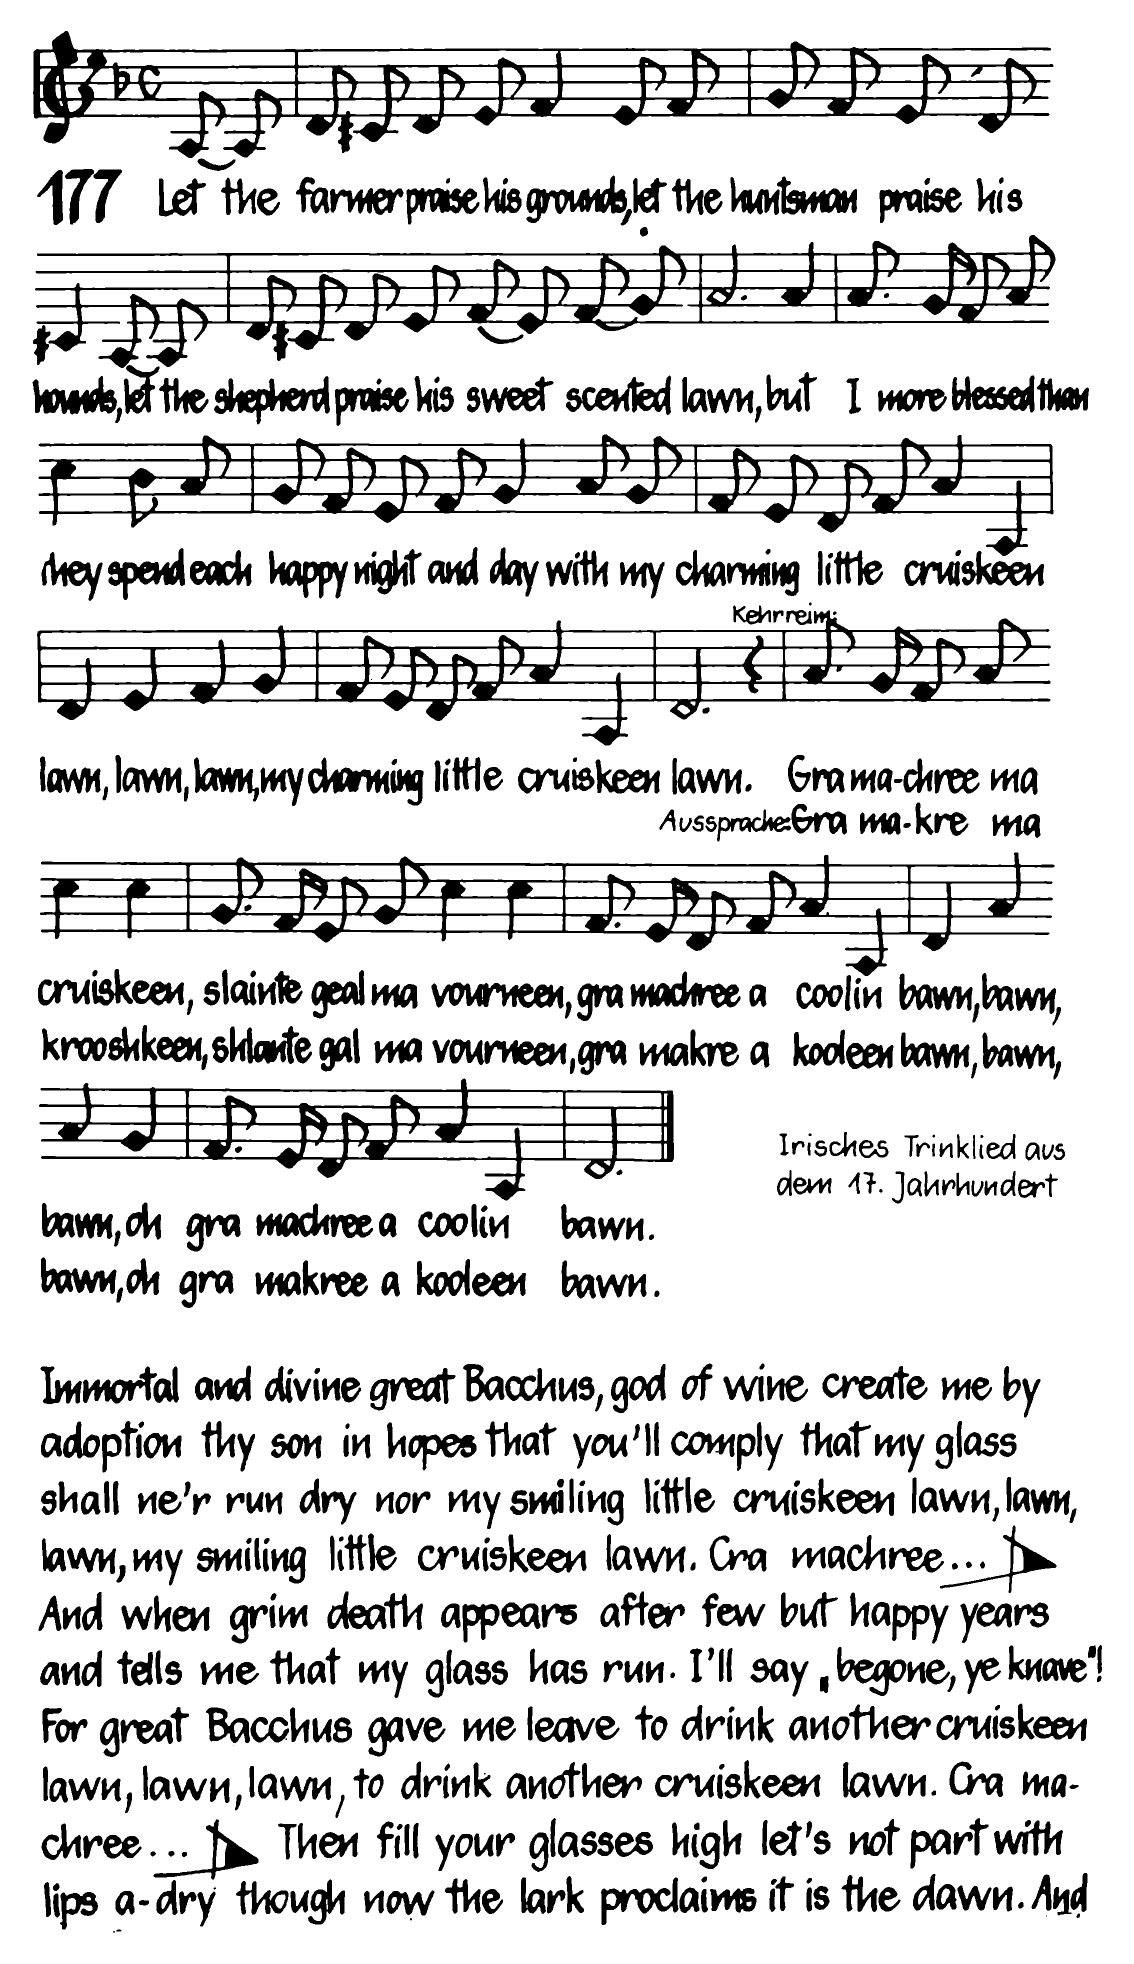 177 Let the farmer praise his grounds, let the huntsman praise his
hounds, let the shepherd praise his sweet scented lawn, but I more blessed than
they spend each happy night and day with my charming little cruiskeen
Kehrreim:
lawn, lawn, lawn, my charming little cruiskeen lawn. Gra ma-chree ma
Aussprache: Gra ma-kre ma
cruiskeen, slainte geal ma vourneen, gra machree a coolin bawn, bawn,
krooshkeen, shlante gal ma vourneen, gra makre a kooleen bawn, bawn,
Irisches Trinklied aus
dem 17. Jahrhundert
bawn, oh gra machree a coolin bawn.
bawn, oh gra makree a kooleen bawn.
Immortal and divine great Bacchus, god of wine create me by
adoption thy son in hopes that you'll comply that my glass
shall ne'r run dry nor my smiling little cruiskeen lawn, lawn,
lawn, my smiling little cruiskeen lawn. Gra machree...
And when grim death appears after few but happy years
and tells me that my glass has run. I'll say „begone, ye knave"!
For great Bacchus gave me leave to drink another cruiskeen
lawn, lawn, lawn, to drink another cruiskeen lawn. Gra ma-
chree... Then fill your glasses high let's not part with
lips a-dry though now the lark proclaims it is the dawn. And